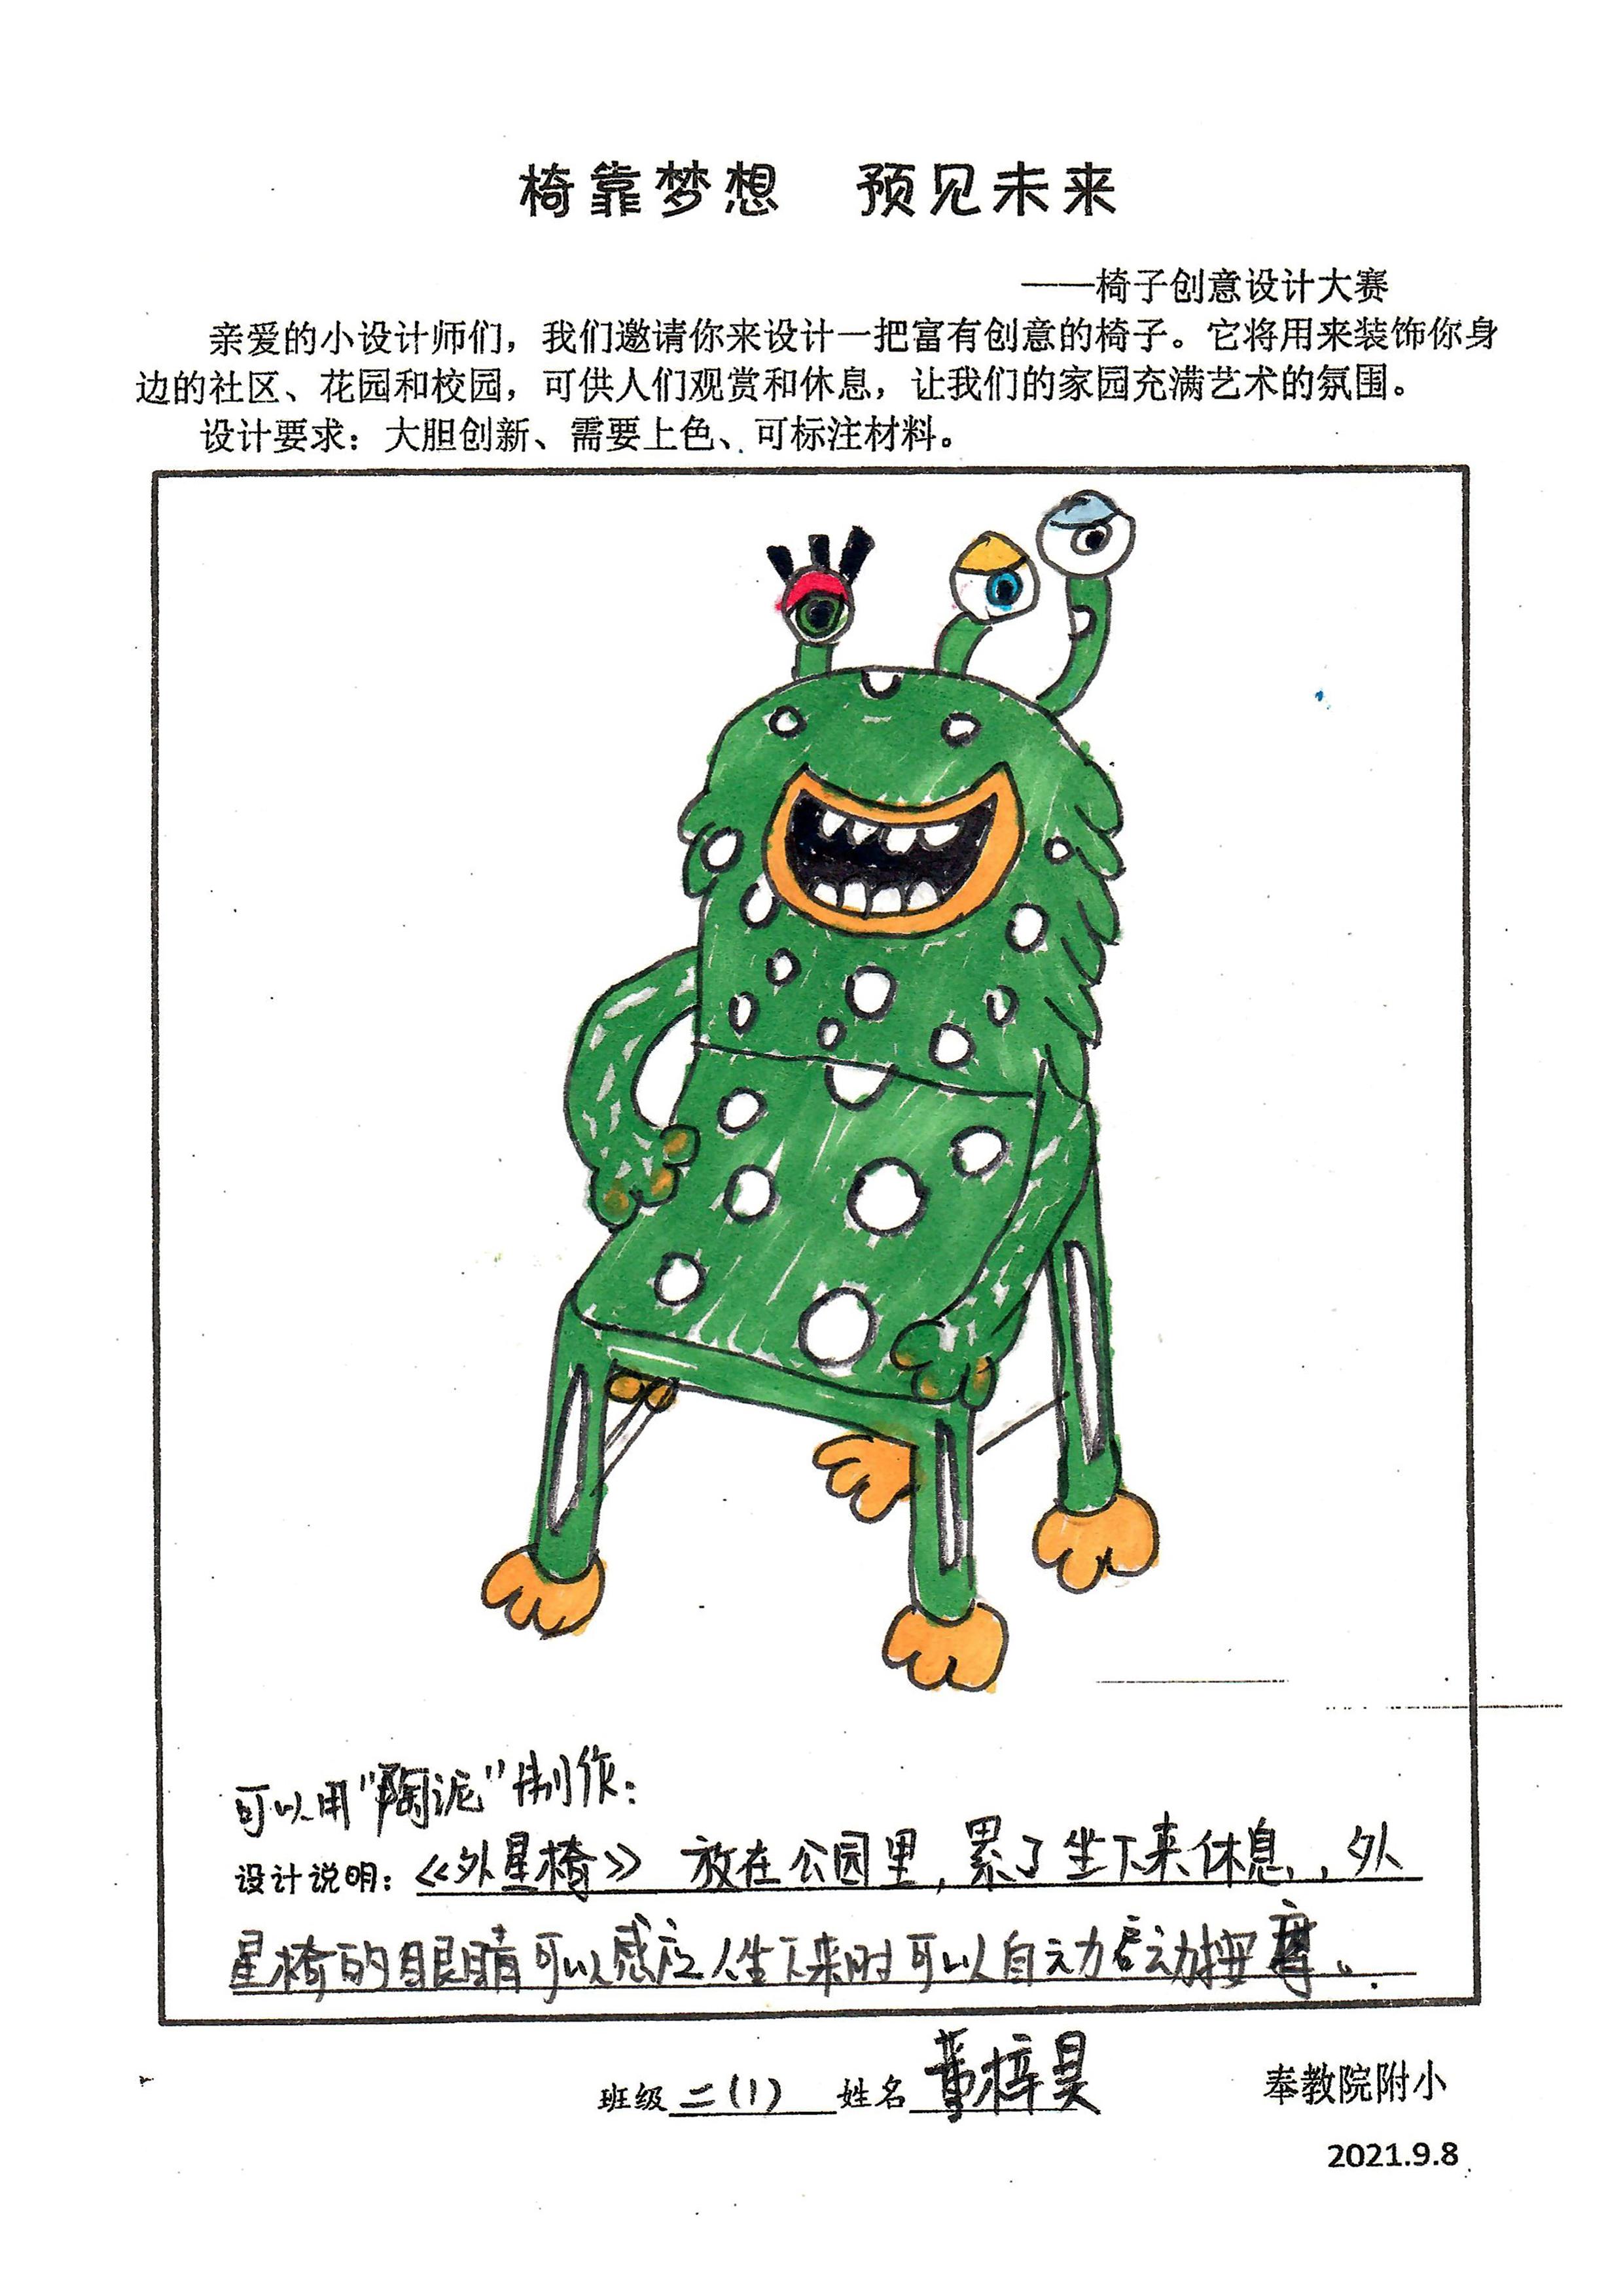 椅靠梦想 预见未来
——椅子创意设计大赛
亲爱的小设计师们，我们邀请你来设计一把富有创意的椅子。它将用来装饰你身
边的社区、花园和校园，可供人们观赏和休息，让我们的家园充满艺术的氛围。
设计要求：大胆创新、需要上色、可标注材料。
可以用“陶泥”制作：
设计说明：《外星椅》 放在公园里，累了坐下来休息，外
星椅的眼睛可以感应人坐下来时可以自动启动按摩。
班级 二(1) 姓名 董梓昊 奉教院附小
2021.9.8